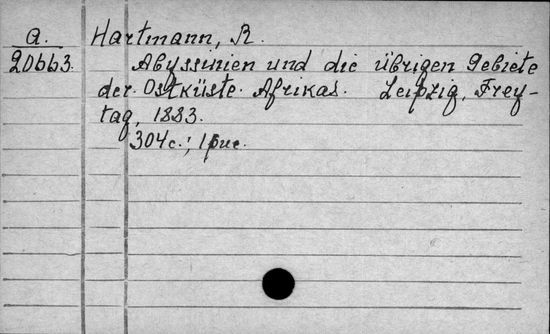 a. Hartmann, R.
20663. Abyssinien und die übrigen Gebiete
der Ostküste Afrikas. Leipzig, Frey-
tag, 1883.
304 c.; 1 рис.